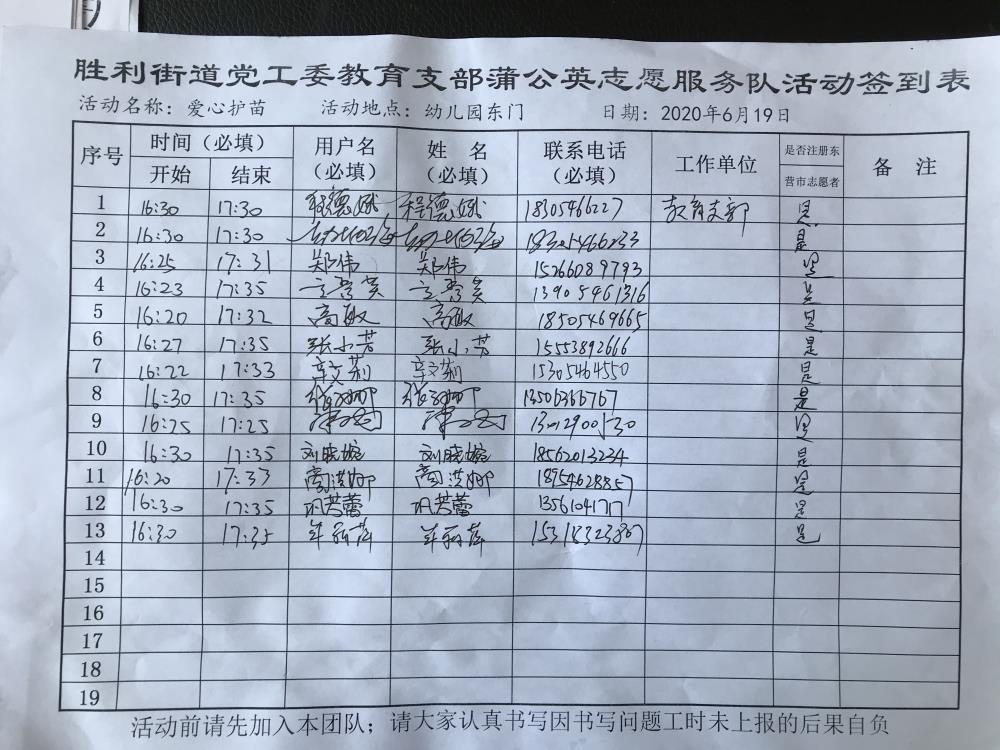 胜利街道党工委教育支部蒲公英志愿服务队活动签到表
活动名称：爱心护苗 活动地点：幼儿园东门 日期：2020年6月19日
序号 时间（必填） 用户名（必填） 姓 名（必填） 联系电话（必填） 工作单位 是否注册东营市志愿者 备 注
开始 结束
1 16:30 17:30 程德娥 程德娥 18305466227 教育支部 是
2 16:30 17:30 是
3 16:25 17:31 郑伟 郑伟 15266089793 是
4 16:23 17:35 13905461316 是
5 16:20 17:32 高敏 高敏 18505469665 是
6 16:27 17:35 张小芳 张小芳 15553892666 是
7 16:22 17:33 辛文莉 辛文莉 15305464550 是
8 16:30 17:35 13506366767 是
9 16:25 17:25 是
10 16:30 17:35 刘晓璇 刘晓璇 18562013234 是
11 16:20 17:33 商洪娜 商洪娜 18954628857 是
12 16:30 17:35 巩芳蕾 巩芳蕾 13561041717 是
13 16:30 17:35 牟丽萍 牟丽萍 15318323867 是
14
15
16
17
18
19
活动前请先加入本团队；请大家认真书写因书写问题工时未上报的后果自负